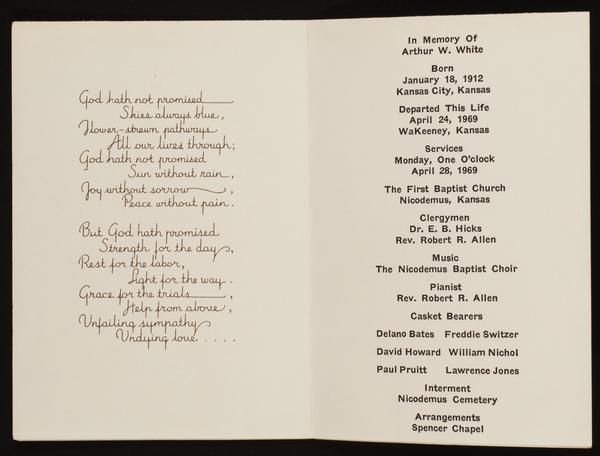 God hath not promised
Skies always blue,
Flower-strewn pathways
All our lives through;
God hath not promised
Sun without rain,
Joy without sorrow,
Peace without pain.
But God hath promised
Strength for the day,
Rest for the labor,
Light for the way.
Grace for the trials,
Help from above,
Unfailing sympathy
Undying love . . . .
In Memory Of
Arthur W. White
Born
January 18, 1912
Kansas City, Kansas
Departed This Life
April 24, 1969
WaKeeney, Kansas
Services
Monday, One O'clock
April 28, 1969
The First Baptist Church
Nicodemus, Kansas
Clergymen
Dr. E. B. Hicks
Rev. Robert R. Allen
Music
The Nicodemus Baptist Choir
Pianist
Rev. Robert R. Allen
Casket Bearers
Delano Bates Freddie Switzer
David Howard William Nichol
Paul Pruitt Lawrence Jones
Interment
Nicodemus Cemetery
Arrangements
Spencer Chapel